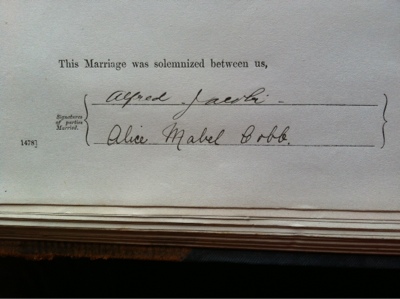 This Marriage was solemnized between us,
Alfred Jacobi
Signatures
of parties
Married.
Alice Mabel Cobb.
1478]